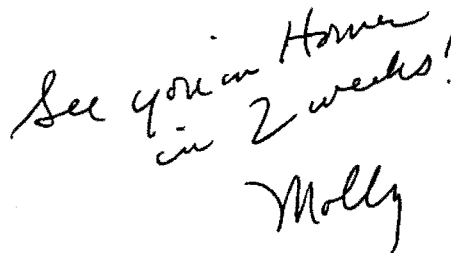 See you in Homer
in 2 weeks!
Molly